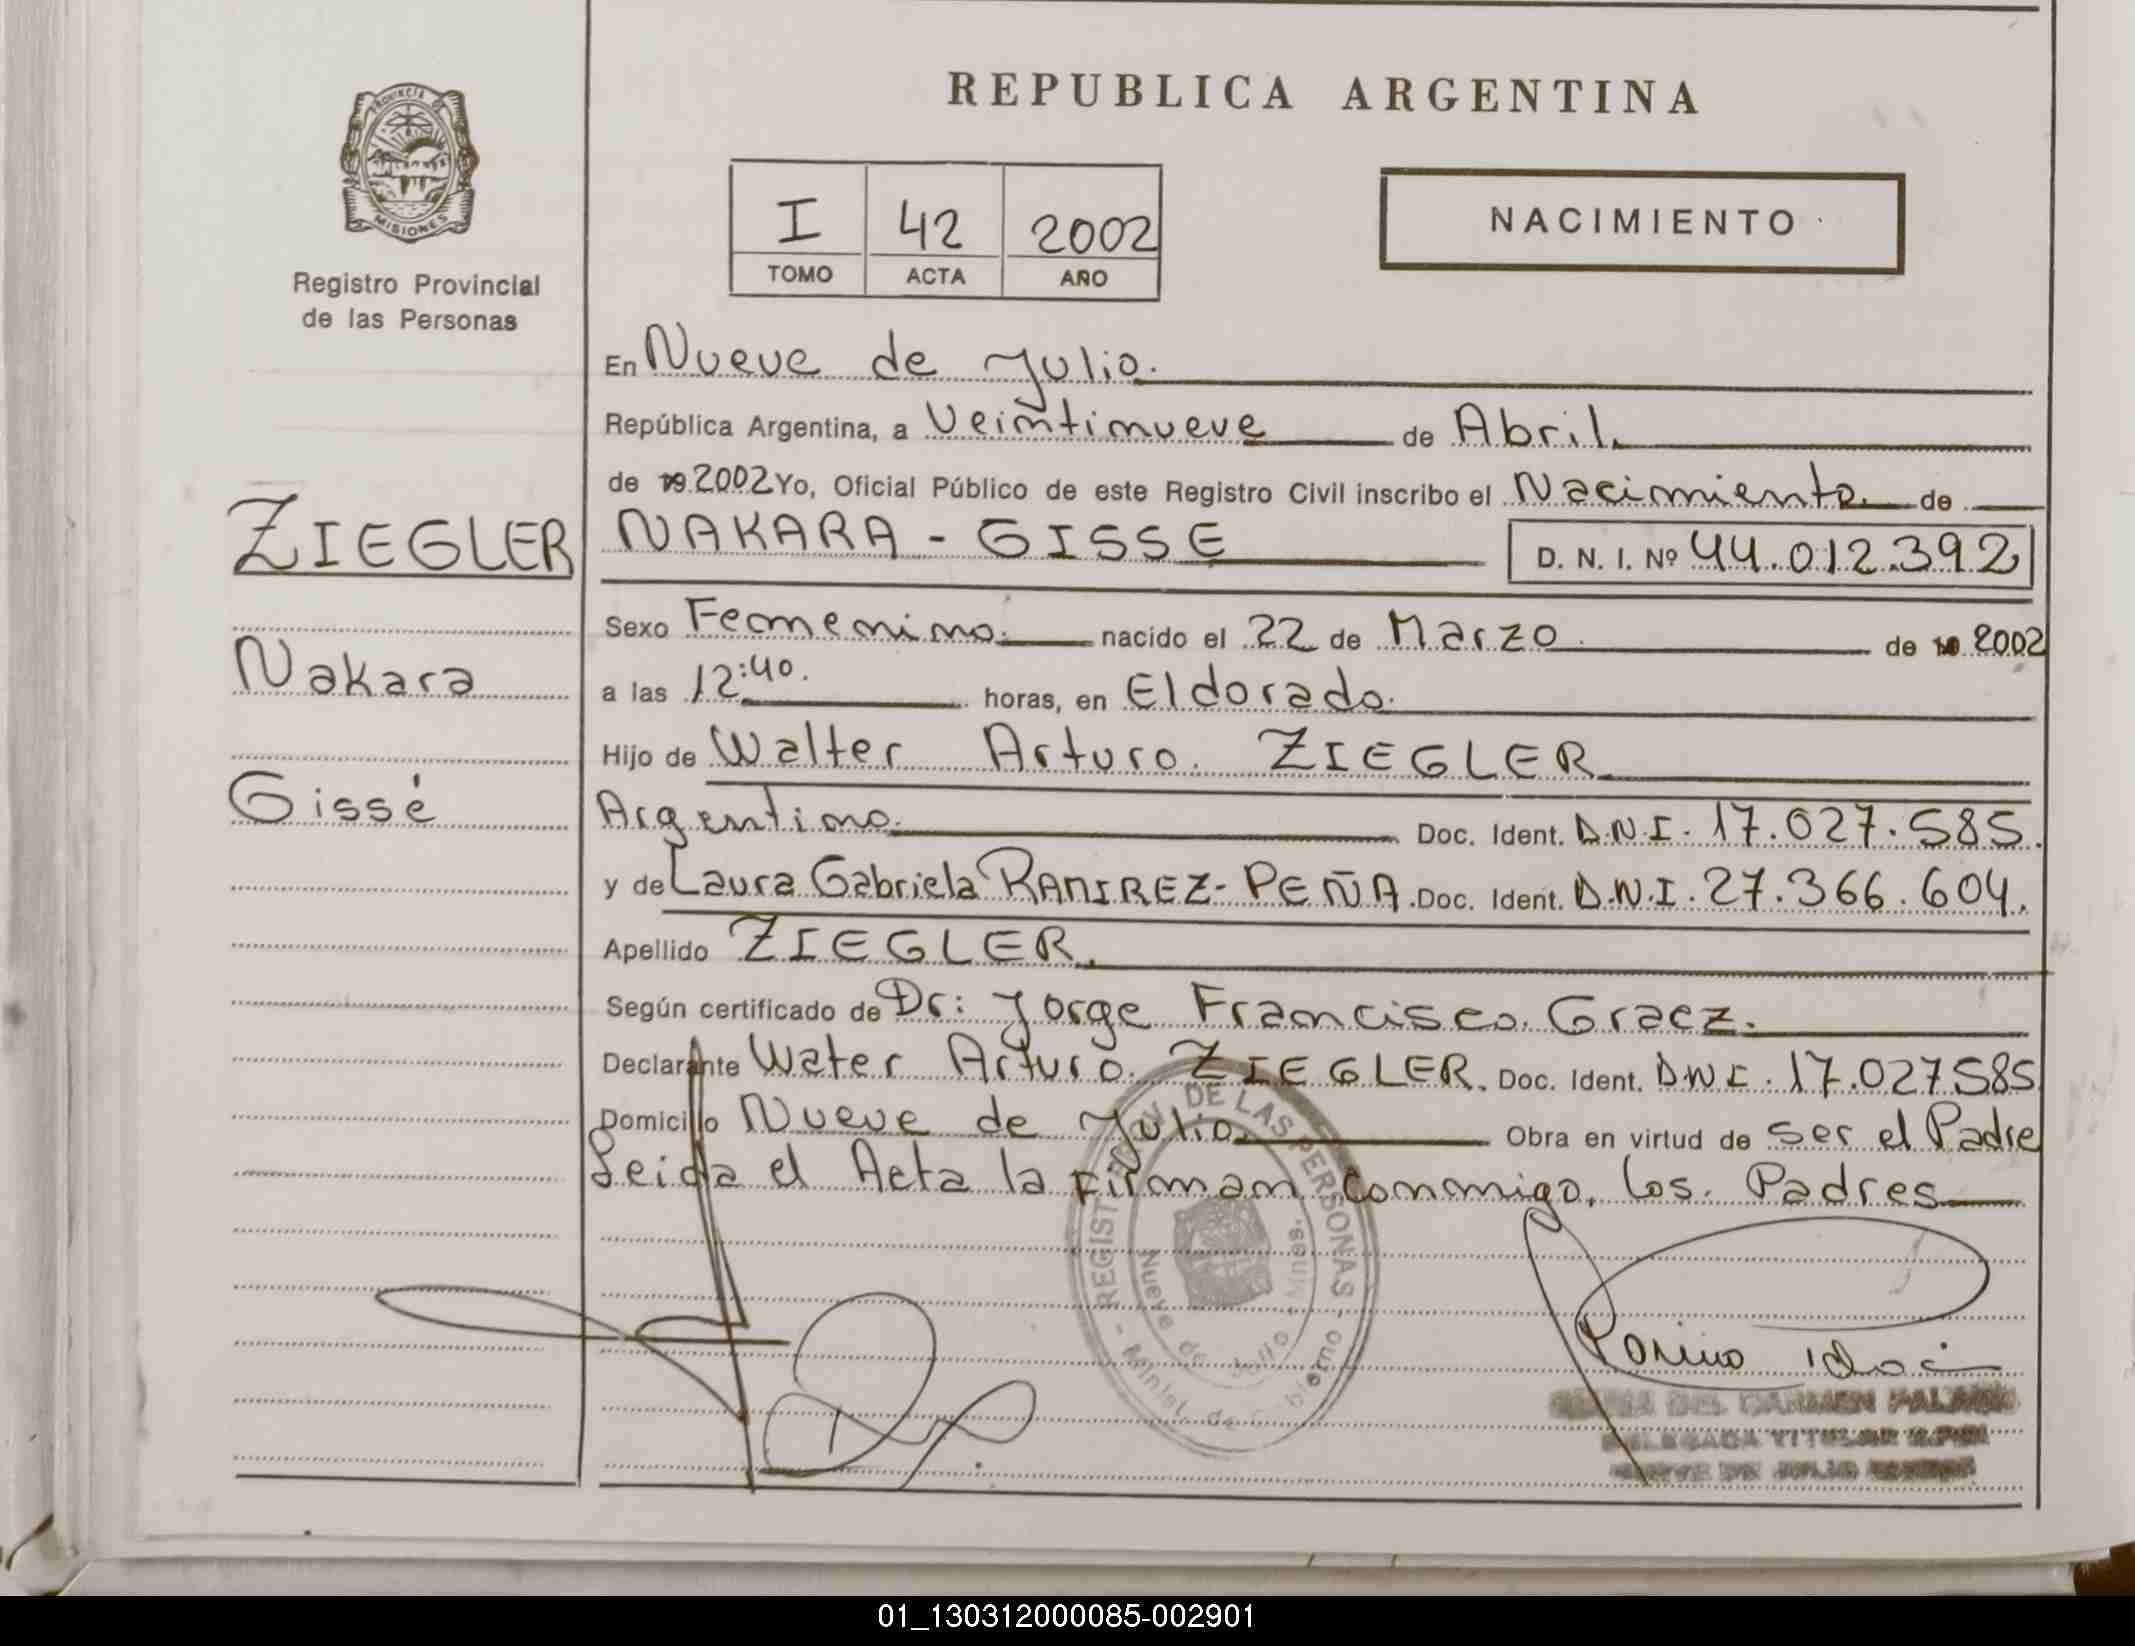 REPUBLICA ARGENTINA
PROVINCIA DE
MISIONES
Registro Provincial
de las Personas
I 42 2002
TOMO ACTA AÑO
NACIMIENTO
En Nueve de Julio.
República Argentina, a Veintinueve de Abril.
de 19 2002 Yo, Oficial Público de este Registro Civil inscribo el Nacimiento de
ZIEGLER
NAKARA - GISSE
D. N. I. Nº 44.012.392
Sexo Femenino. nacido el 22 de Marzo. de 19 2002
Nakara
a las 12:40. horas, en Eldorado.
Hijo de Walter Arturo. ZIEGLER
Gissé
Argentino. Doc. Ident. D.N.I. 17.027.585.
y de Laura Gabriela RAMIREZ - PEÑA. Doc. Ident. D.N.I. 27.366.604.
Apellido ZIEGLER.
Según certificado de Dr: Jorge Francisco. Graez.
Declarante Water Arturo. ZIEGLER. Doc. Ident. DNI. 17.027585
Domicilio Nueve de Julio. Obra en virtud de ser el Padre
Leida el Acta la Firman conmigo, los. Padres
REGIST PROV. DE LAS PERSONAS
Nueve de Julio - Mnes.
- Minist. de Gobierno -
DEL CARMEN
DELEGADA TITULAR
NUEVE DE JULIO
01_130312000085-002901